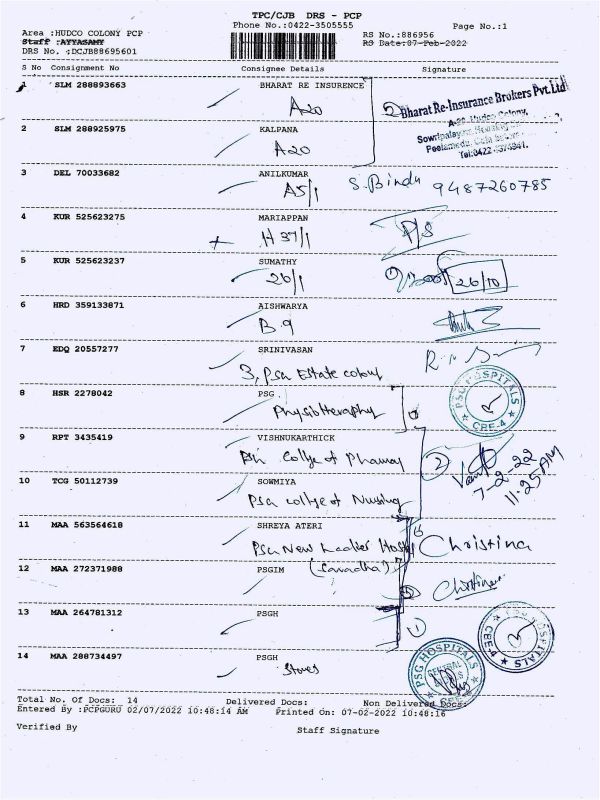 TPC/CJB DRS - PCP
Phone No.:0422-3505555
Page No.:1
Area :HUDCO COLONY PCP
RS No.:886956
Staff :AYYASAMY
RS Date:07-Feb-2022
DRS No. :DCJB88695601
S No Consignment No Consignee Details Signature
1 SLM 288893663 BHARAT RE INSURENCE
A20
② Bharat Re-Insurance Brokers Pvt.Ltd
A-20, Hudco Colony,
Peelamedu,
Tel:0422
2 SLM 288925975 KALPANA
A20
3 DEL 70033682 ANILKUMAR
A5/1 S. Bindu 9487260785
4 KUR 525623275 MARIAPPAN
H 37/1 P/S
5 KUR 525623237 SUMATHY
26/1 26/10
6 HRD 359133871 AISHWARYA
B.9
7 EDQ 20557277 SRINIVASAN
3, Psa Estate colony
8 HSR 2278042 PSG
Physiotheraphy
PSG HOSPITALS
CBE-4
9 RPT 3435419 VISHNUKARTHICK
College of Phamacy ②
7-2-22
11:25 AM
10 TCG 50112739 SOWMIYA
Psa college of Nursing
11 MAA 563564618 SHREYA ATERI
Psa New Ladies Hostel Christina
12 MAA 272371988 PSGIM (Saradha)
Christina
13 MAA 264781312 PSGH
①
PSG HOSPITALS
CBE-4
14 MAA 288734497 PSGH
Stores
PSG HOSPITALS
CENTRAL
Total No. Of Docs: 14 Delivered Docs: Non Delivered Docs:
Entered By :PCPGURU 02/07/2022 10:48:14 AM Printed On: 07-02-2022 10:48:16
Verified By Staff Signature